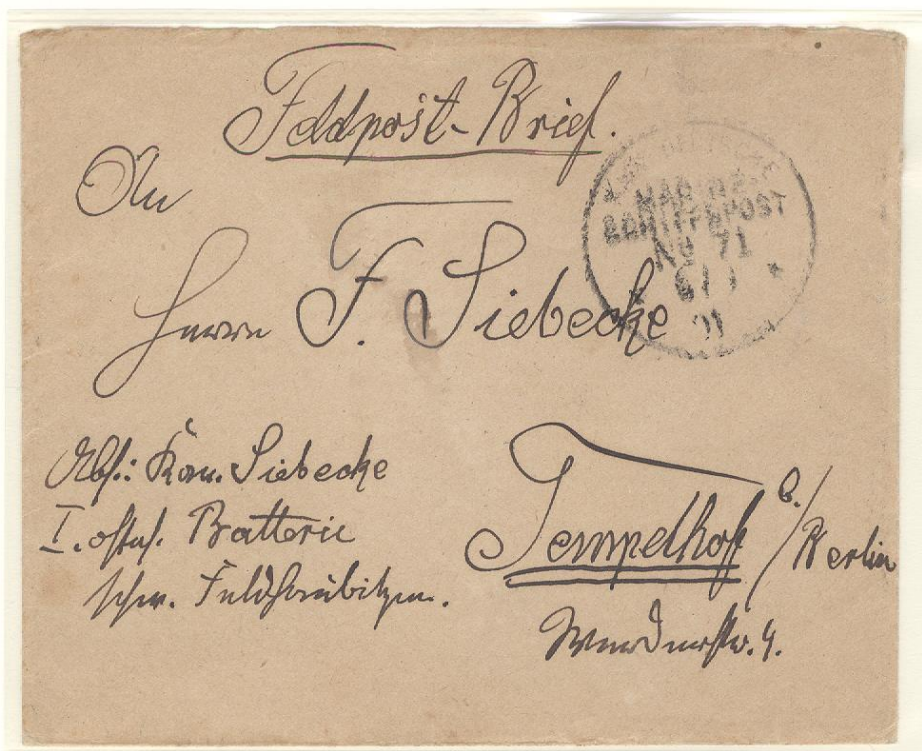 Feldpost-Brief.
An
Herrn F. Siebecke
KAIS. DEUTSCHE
MARINE
SCHIFFSPOST
No 71
6/1
01
Abs.: Kan. Siebecke
I. ostas. Batterie
schw. Feldhaubitzen.
Tempelhof b./Berlin
Werderstr. 4.